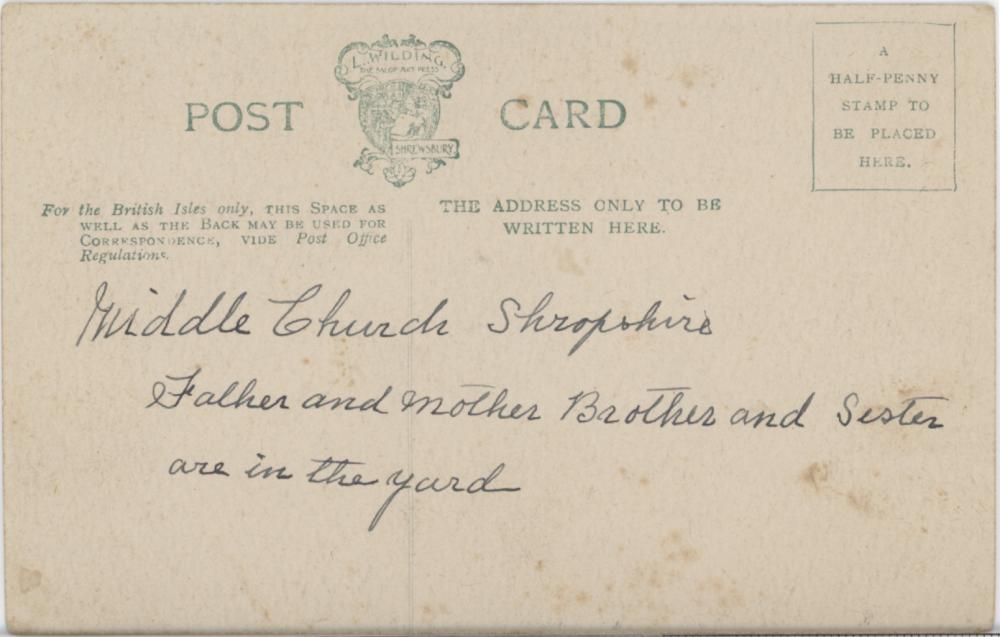 L. WILDING.
THE SALOP ART PRESS
SHREWSBURY.
POST CARD
A
HALF-PENNY
STAMP TO
BE PLACED
HERE.
For the British Isles only, THIS SPACE AS
WELL AS THE BACK MAY BE USED FOR
CORRESPONDENCE, VIDE Post Office
Regulations.
THE ADDRESS ONLY TO BE
WRITTEN HERE.
Middle Church Shropshire
Father and Mother Brother and Sister
are in the yard